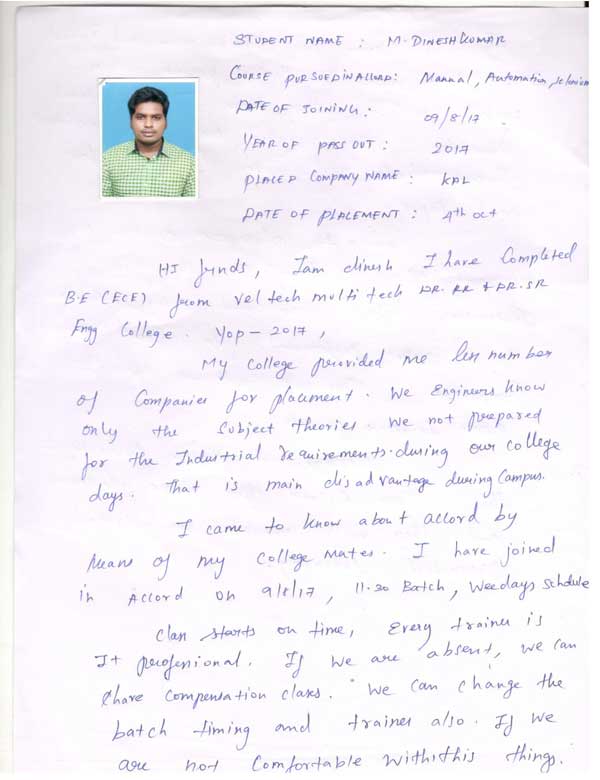 STUDENT NAME : M. DINESHKUMAR
COURSE PURSUED IN ACCORD: Manual, Automation, Selenium
DATE OF JOINING : 09/8/17
YEAR OF PASS OUT : 2017
PLACED COMPANY NAME : KPL
DATE OF PLACEMENT : 4th oct
HI frnds, Iam dinesh I have Completed
B.E (ECE) from Vel tech multi tech DR. RR & DR. SR
Engg College. Yop - 2017,
My College provided me less number
of Companies for placement. We Engineers know
only the Subject theories. We not prepared
for the Industrial requirements during our college
days. That is main disadvantage during Campus.
I came to know about accord by
Means of my College Mates. I have joined
in Accord on 9/8/17, 11.30 Batch, Weedays Schdule
Class starts on time, Every trainer is
It professional. If we are absent, we can
have compensation class. We can change the
batch timing and trainer also. If we
are not Comfortable with this things.